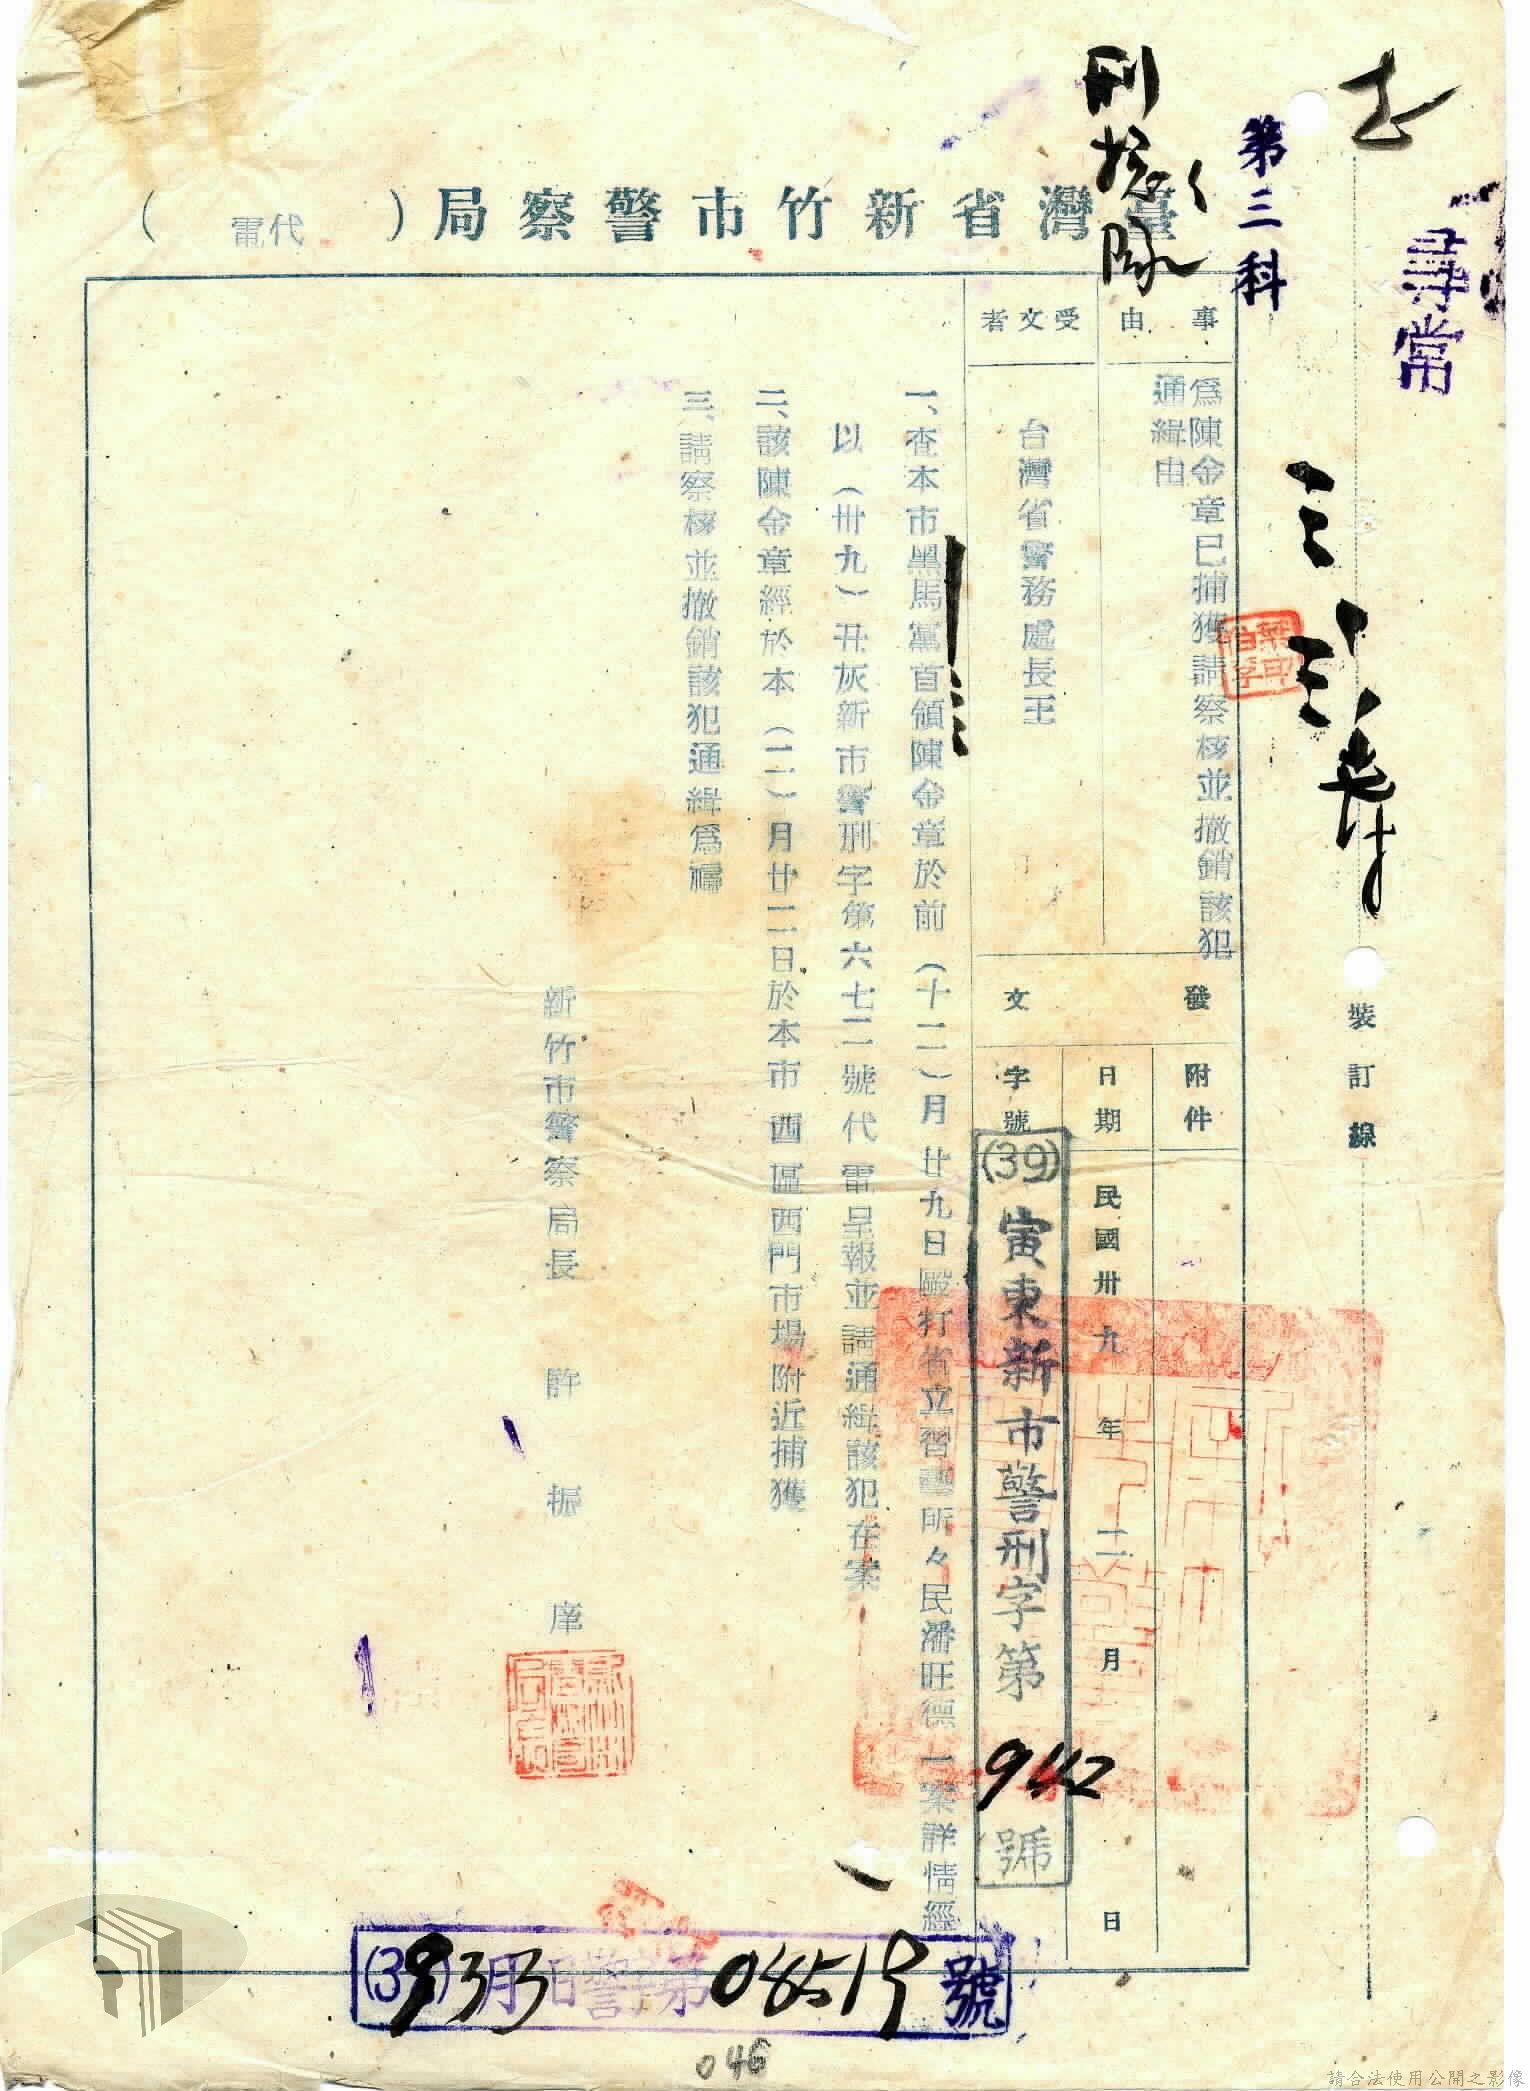 尋常
第三科
臺灣省新竹市警察局（代電）
事由
為陳金章已捕獲請察核並撤銷該犯
通緝由
受文者
台灣省警務處長王
發文
附件
日期
民國卅九年二月日
字號
(39)寅東新市警刑字第942號
一、查本市黑馬黨首領陳金章於前（十二）月廿九日毆打省立習藝所々民潘旺德一案詳情經
以（卅九）丑灰新市警刑字第六七二號代電呈報並請通緝該犯在案
二、該陳金章經於本（二）月廿二日於本市西區西門市場附近捕獲
三、請察核並撤銷該犯通緝為禱
新竹市警察局長許振庠
裝訂線
月日警第08519號
046
請合法使用公開之影像